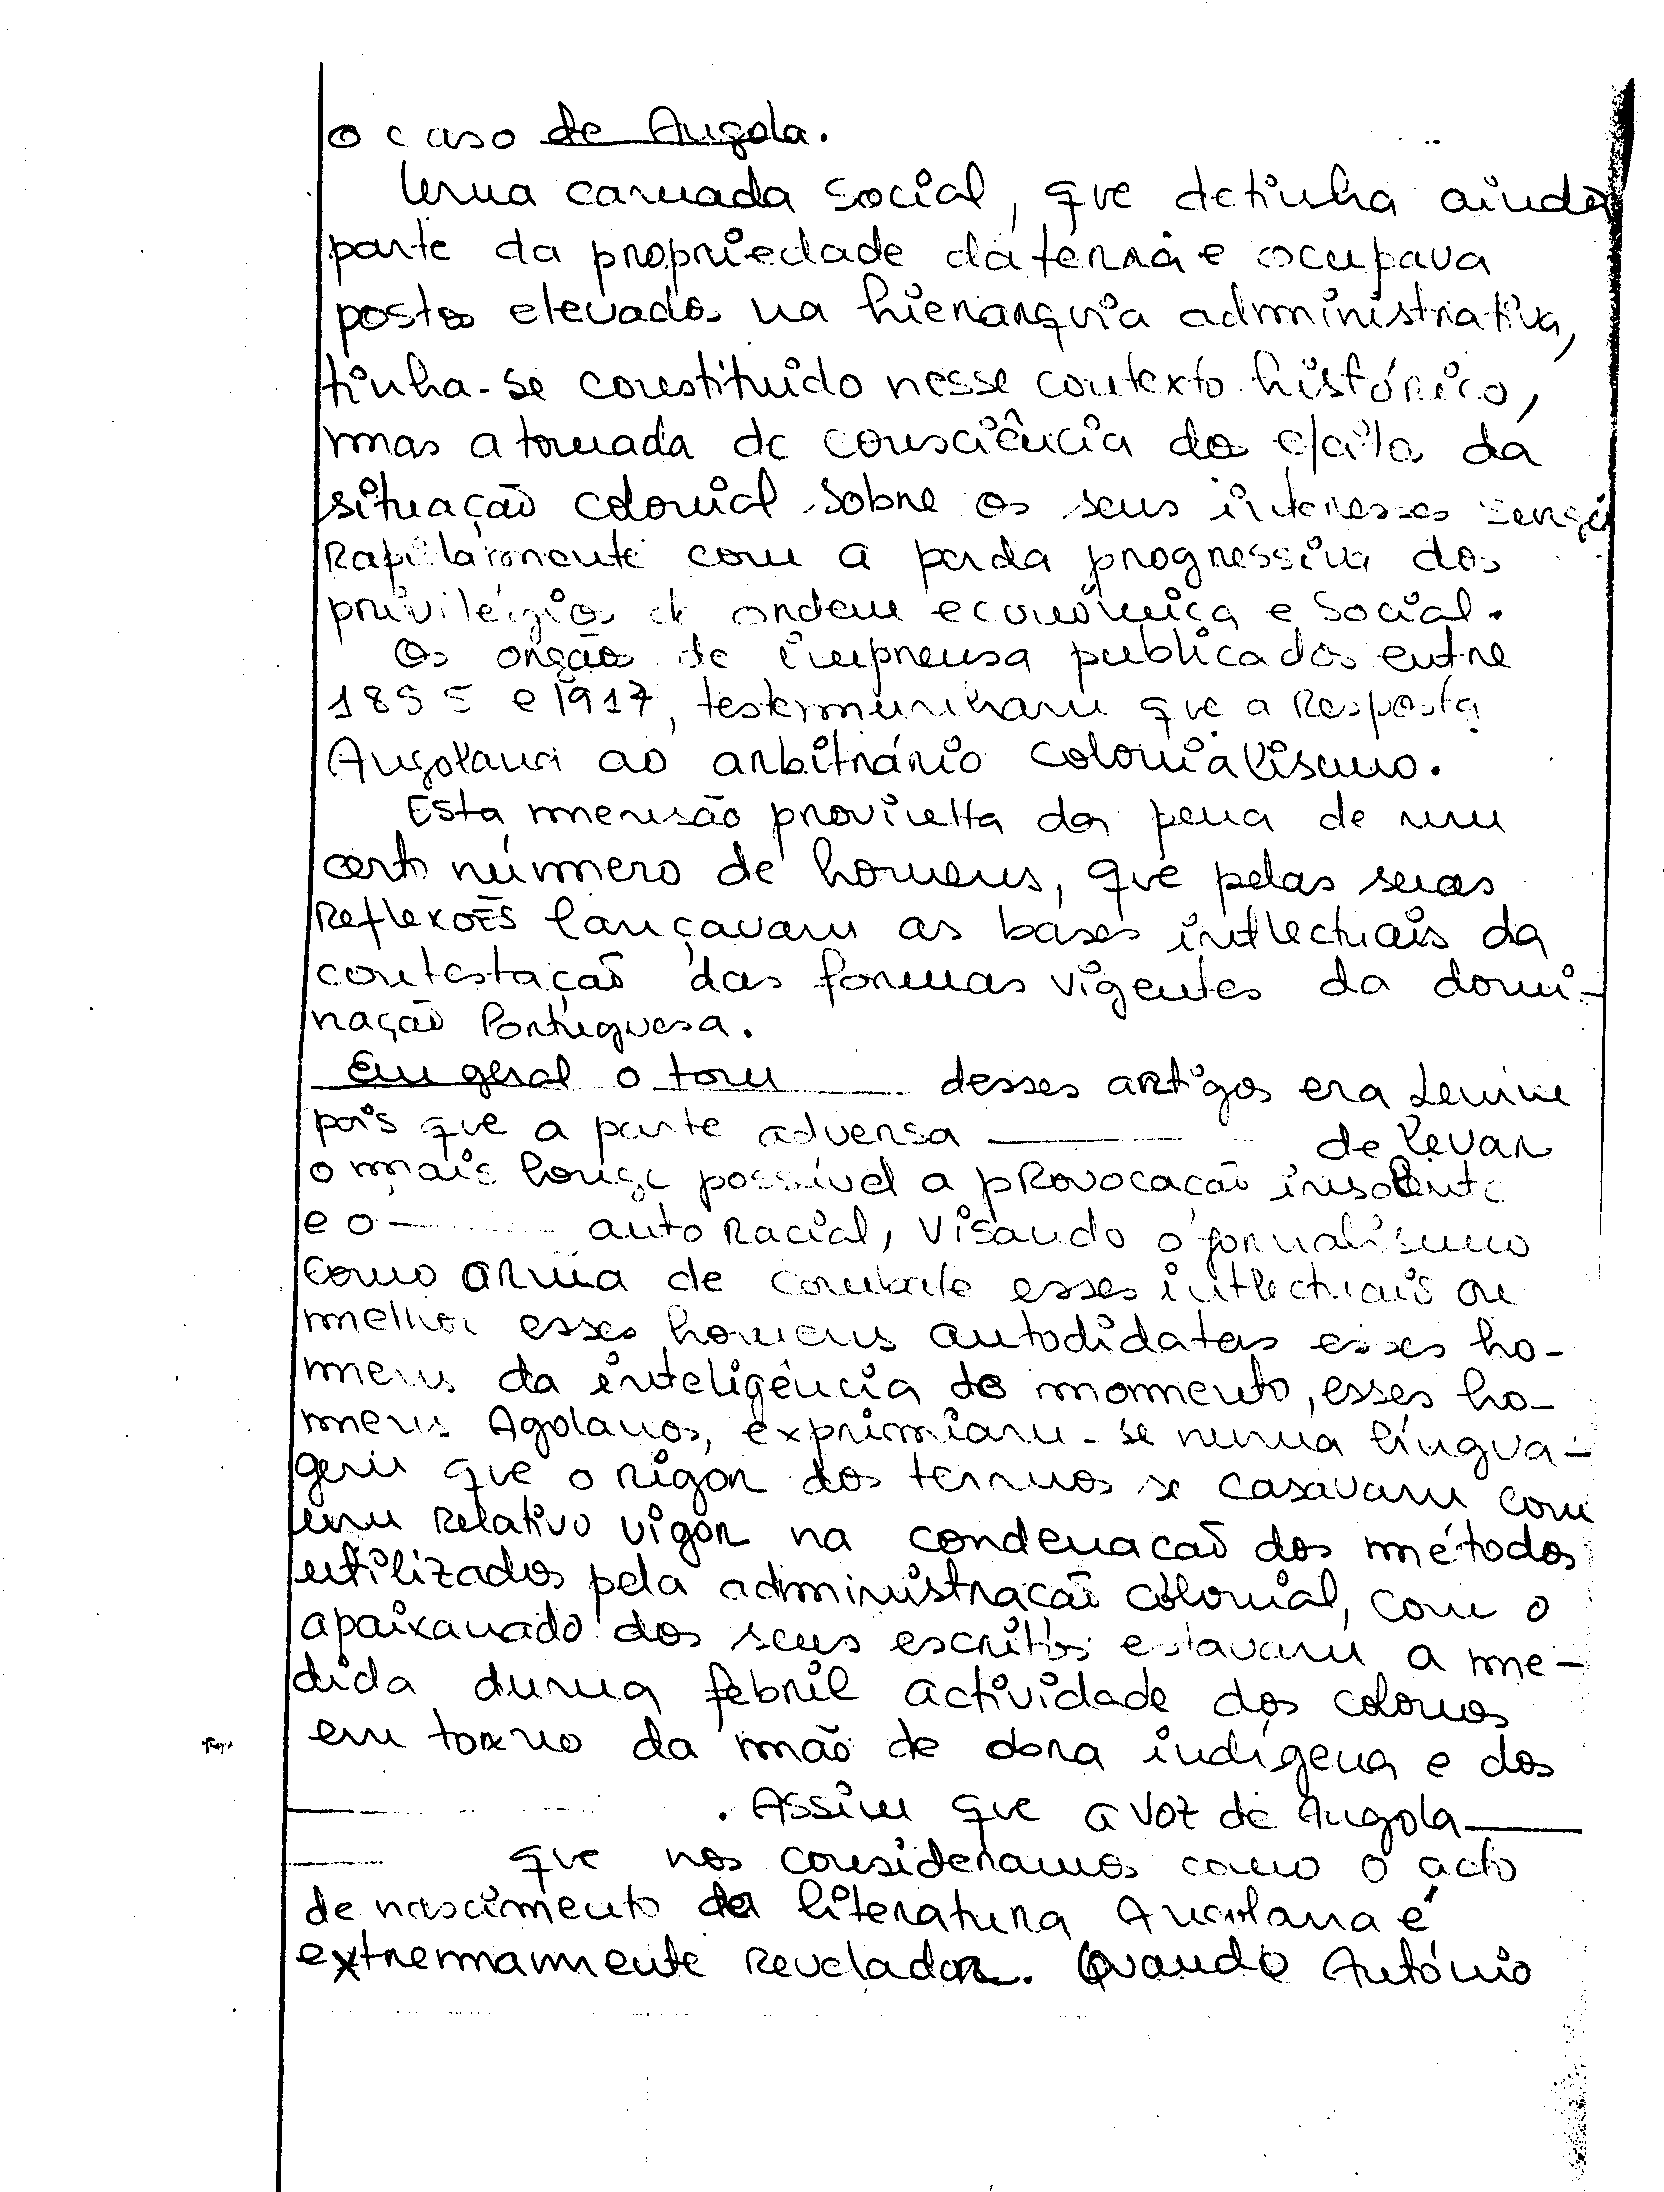 O caso de Angola.
Uma camada social, que detinha ainda
parte da propriedade da terra e ocupava
postos elevados na hierarquia administrativa,
tinha-se constituido nesse contexto histórico,
mas a tomada de consciência do efeito da
situação colonial sobre os seus interesses
Rapidamente com a perda progressiva dos
privilégios de ordem económica e social.
Os orgãos de imprensa publicados entre
e 1917, testemunham que a Resposta
Angolana ao arbitrário colonialismo.
Esta mensão da pena de um
certo número de homens, que pelas suas
Reflexões lançavam as bases intlectuais da
contestação das formas vigentes da domi-
nação Portuguesa.
Em geral o tom ____ desses artigos era
pois que a parte adversa ____ de levar
o mais longe possível a provocação insolente
e o ____ auto Racial, Visando o jornalismo
como arma de combate esses intlectuais ou
melhor esses homens autodidatas esses ho-
mens da inteligência do momento, esses ho-
mens Agolanos, exprimiam-se numa língua-
gem que o rigor dos termos se casavam com
um Relativo vigor na condenacão dos métodos
utilizados pela administracão colonial, com o
apaixanado dos seus escritos estavam a me-
dida duma febril actividade dos colonos
em torno da mão de obra indígena e dos
____. Assim que a voz de Angola ____
____ que nos consideramos como o acto
de nascimento da literatura Angolana é
extremamente Revelador. Quando António